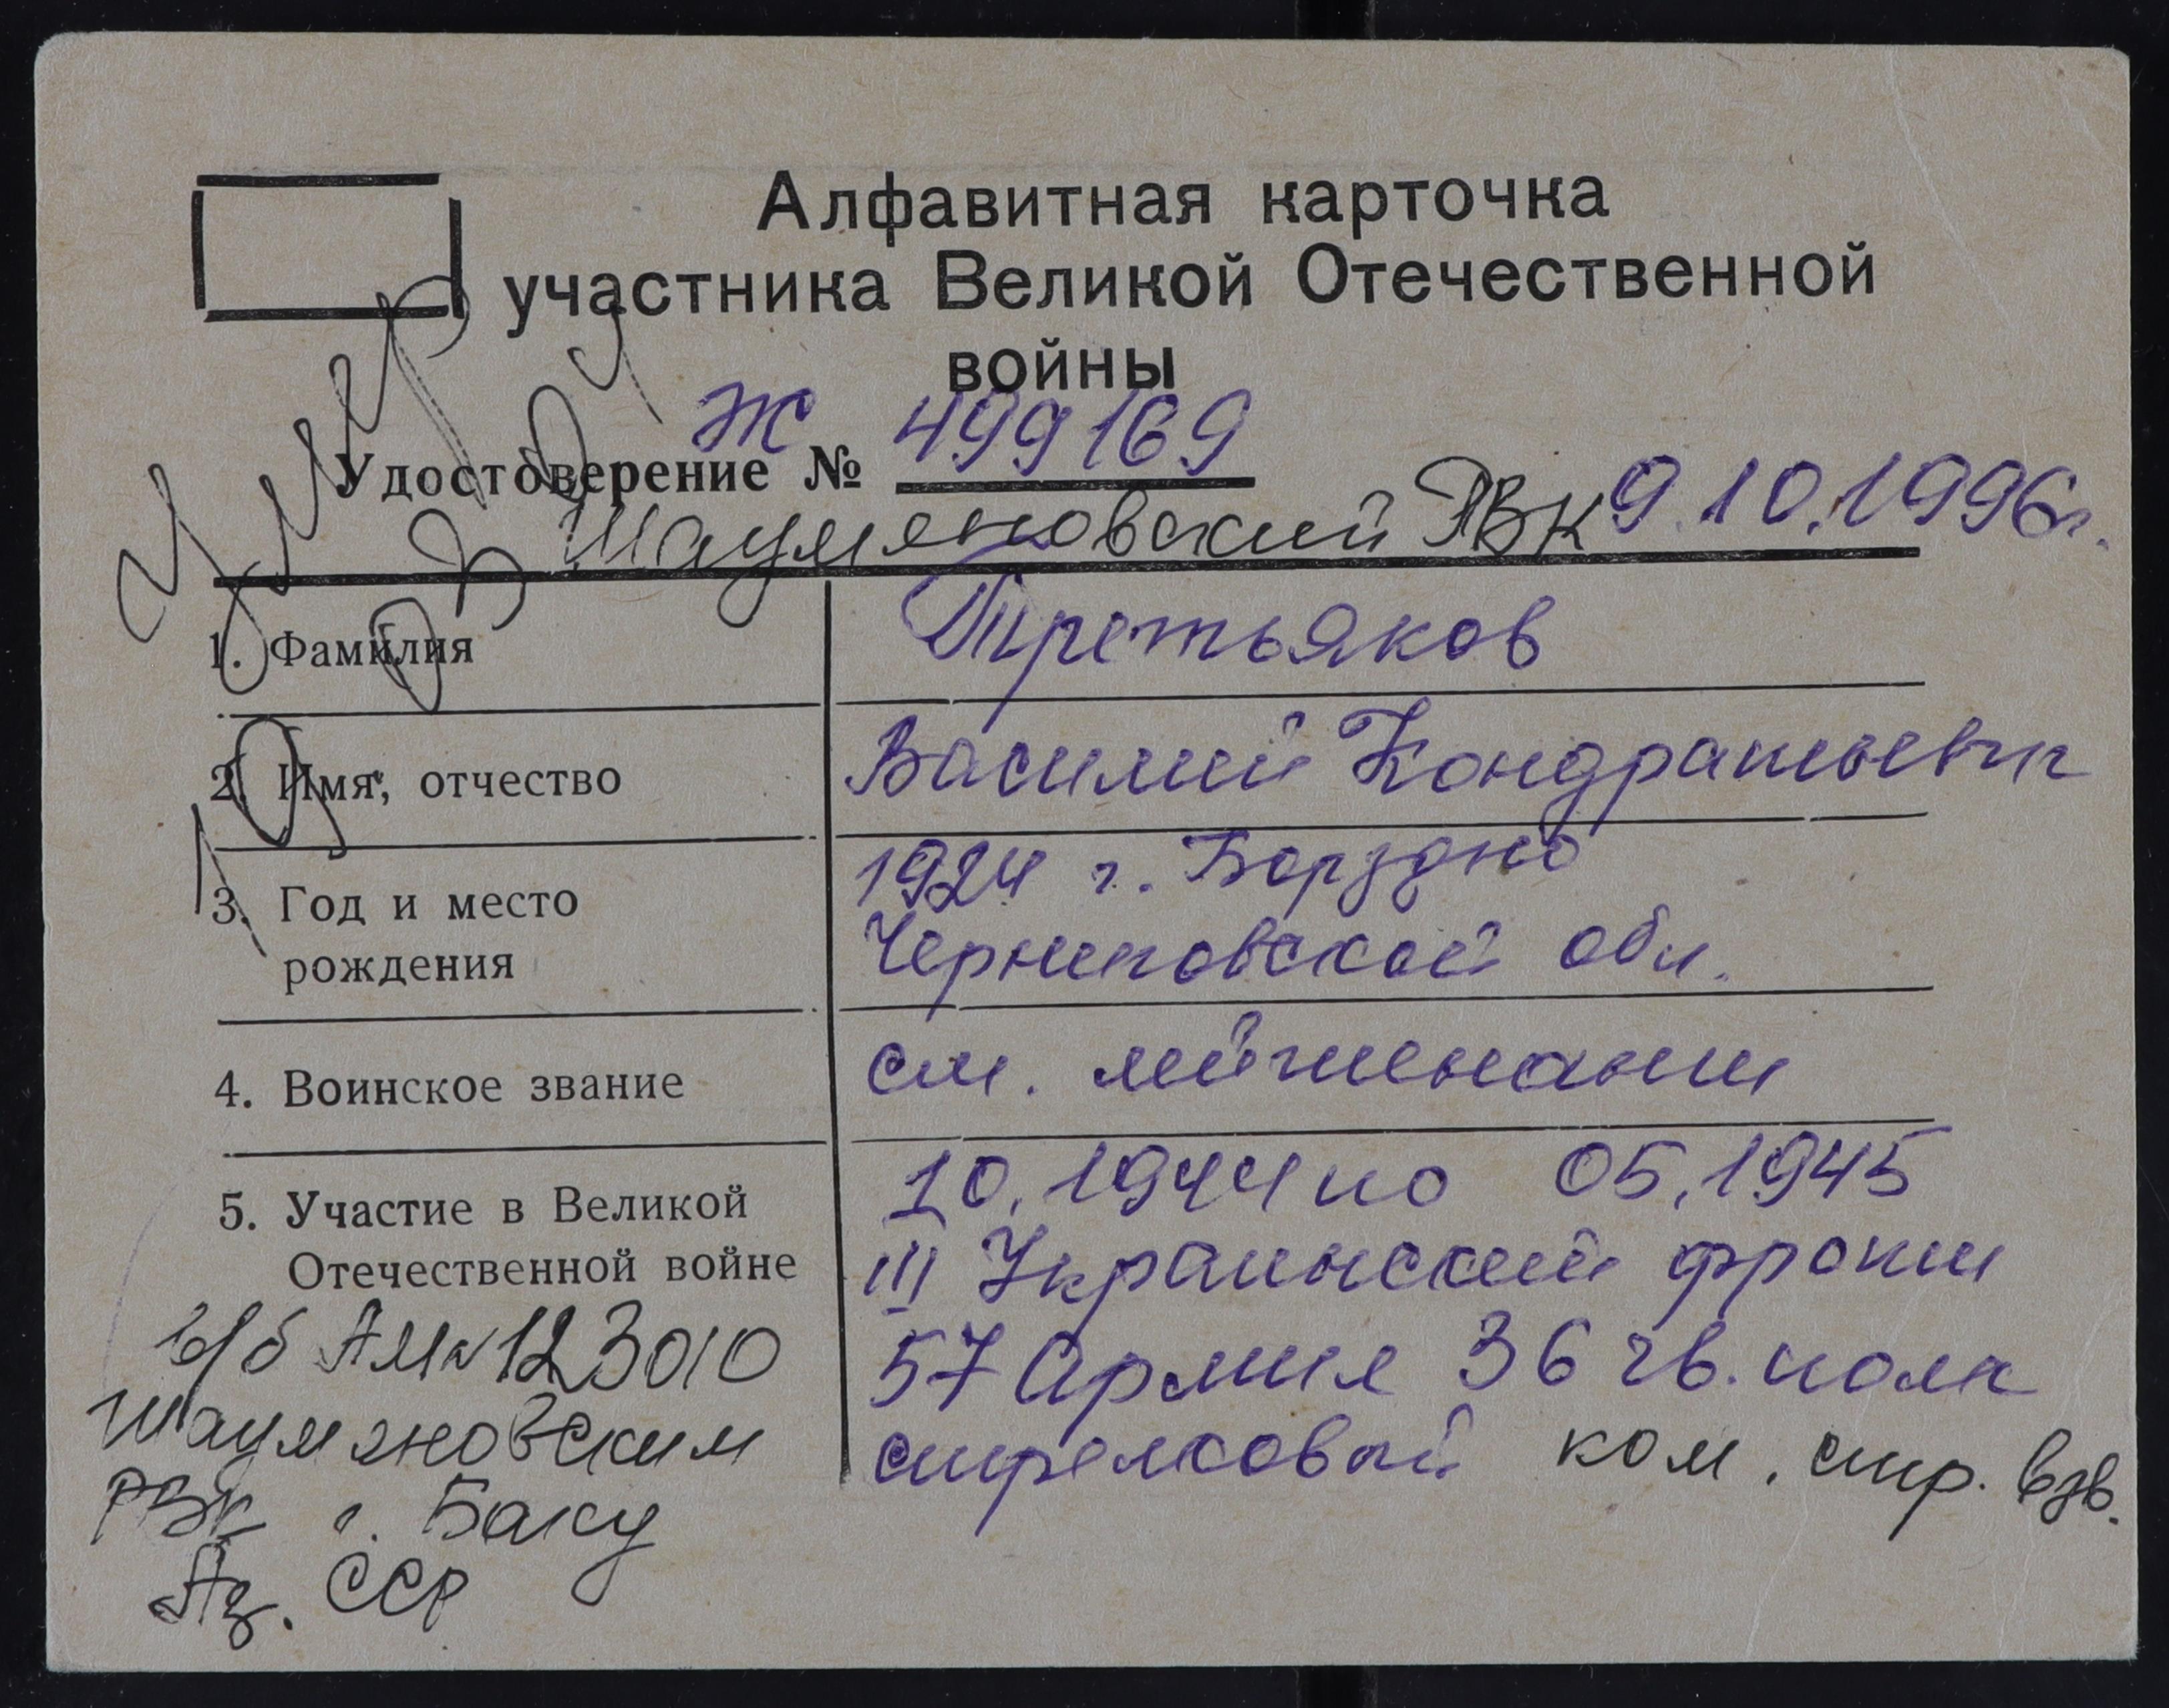 Алфавитная карточка
участника Великой Отечественной
войны
Удостоверение № Ж 499169
Шаумяновский РВК 9.10.1996г.
Умер
1. Фамилия Третьяков
2. Имя, отчество Василий Кондратьевич
3. Год и место 1924 г. Борздно
рождения Черниговской обл.
4. Воинское звание ст. лейтенант
5. Участие в Великой 10.1944 по 05.1945
Отечественной войне III Украинский фронт
57 Армия 36 гв. полк
стрелковый ком. стр. взв.
в/б АМ № 123010
Шаумяновским
РВК г. Баку
Аз. ССР